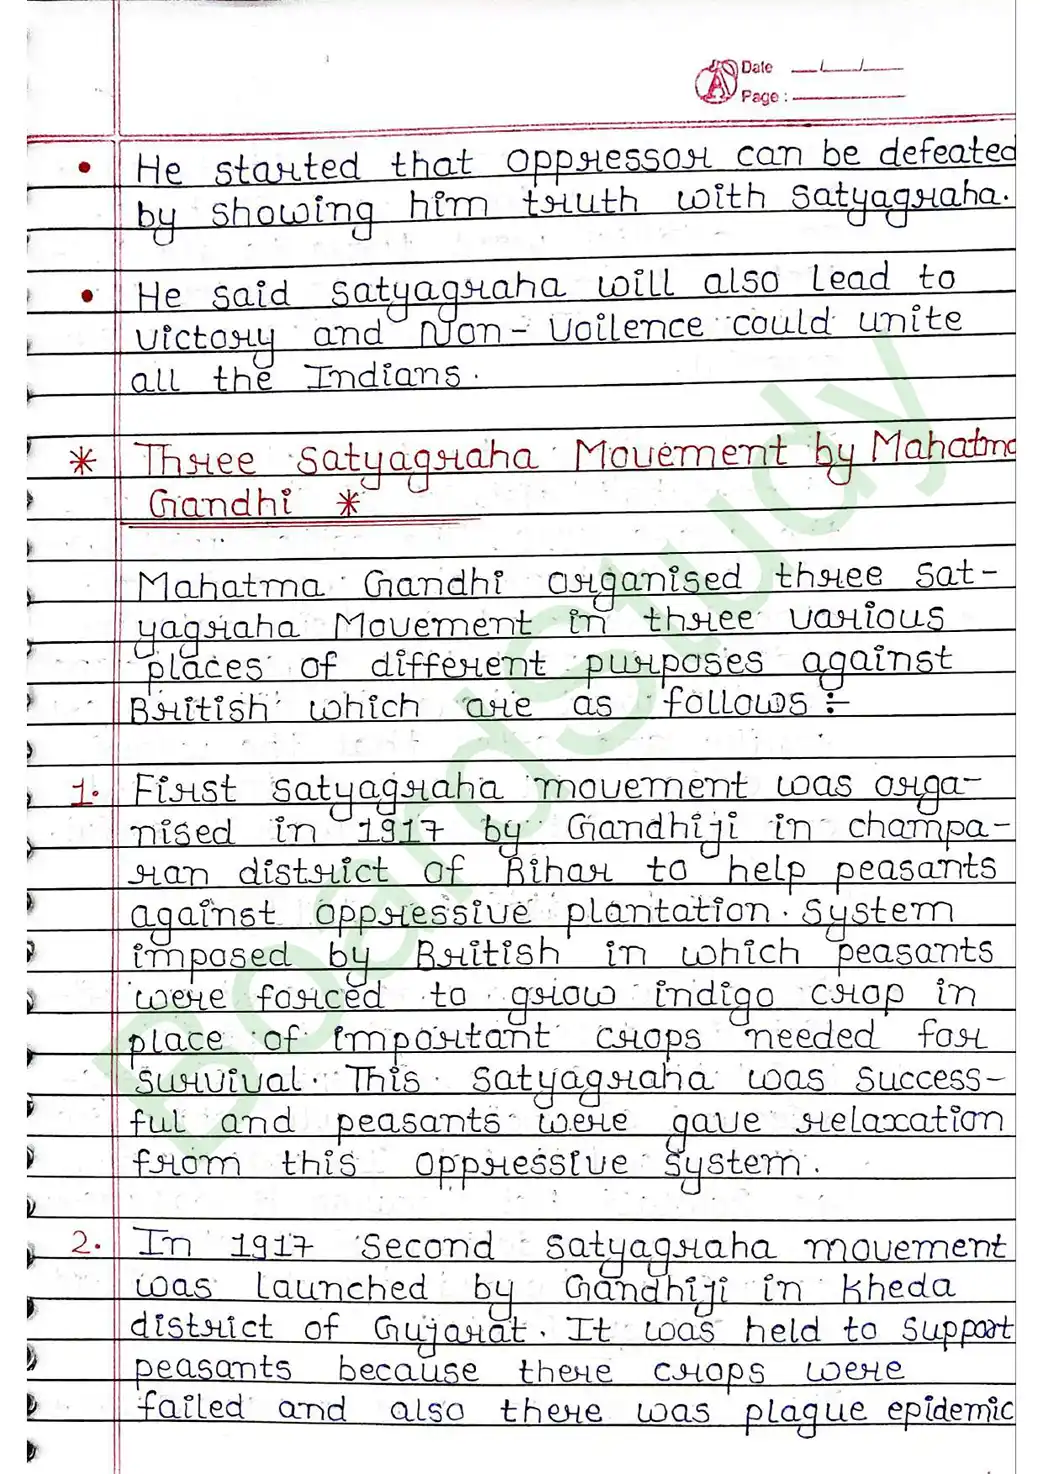 Date __/__/__
Page : ________
• He started that oppressor can be defeated
by showing him truth with satyagraha.
• He said satyagraha will also lead to
victory and Non-Voilence could unite
all the Indians.
* Three satyagraha Movement by Mahatma
Gandhi *
Mahatma Gandhi organised three sat-
yagraha Movement in three various
places of different purposes against
British which are as follows :-
1. First satyagraha movement was orga-
nised in 1917 by Gandhiji in champa-
ran district of Bihar to help peasants
against oppressive plantation. system
imposed by British in which peasants
were forced to grow indigo crop in
place of important crops needed for
survival. This satyagraha was success-
ful and peasants were gave relaxation
from this oppressive system.
2. In 1917 second satyagraha movement
was launched by Gandhiji in kheda
district of Gujarat. It was held to support
peasants because there crops were
failed and also there was plague epidemic
BoardStudy